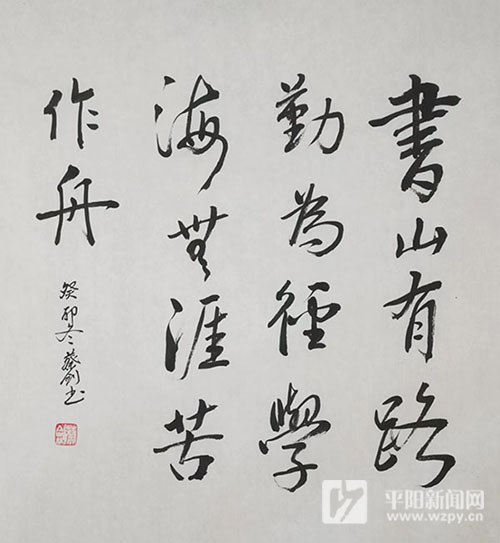 書山有路
勤為徑學
海無涯苦
作舟
癸卯冬蔡劍书
平阳新闻网
www.wzpy.cn